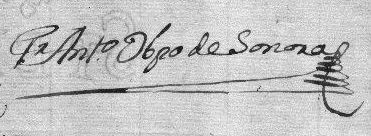 Fr. Anto. Obpo de Sonora